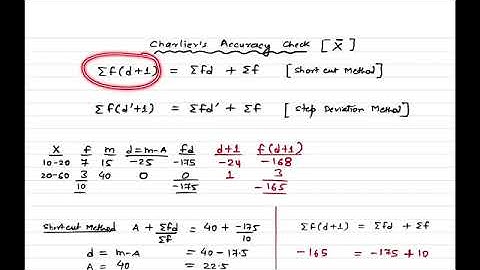 Charlier's Accuracy Check [X̄]
Σf(d+1) = Σfd + Σf [Short cut Method]
Σf(d'+1) = Σfd' + Σf [Step Deviation Method]
X f m d=m-A fd d+1 f(d+1)
10-20 7 15 -25 -175 -24 -168
20-60 3 40 0 0 1 3
10 -175 -165
Shortcut Method A + Σfd/Σf = 40 + -175/10
Σf(d+1) = Σfd + Σf
d = m-A = 40 - 17.5
-165 = -175 + 10
A = 40 = 22.5